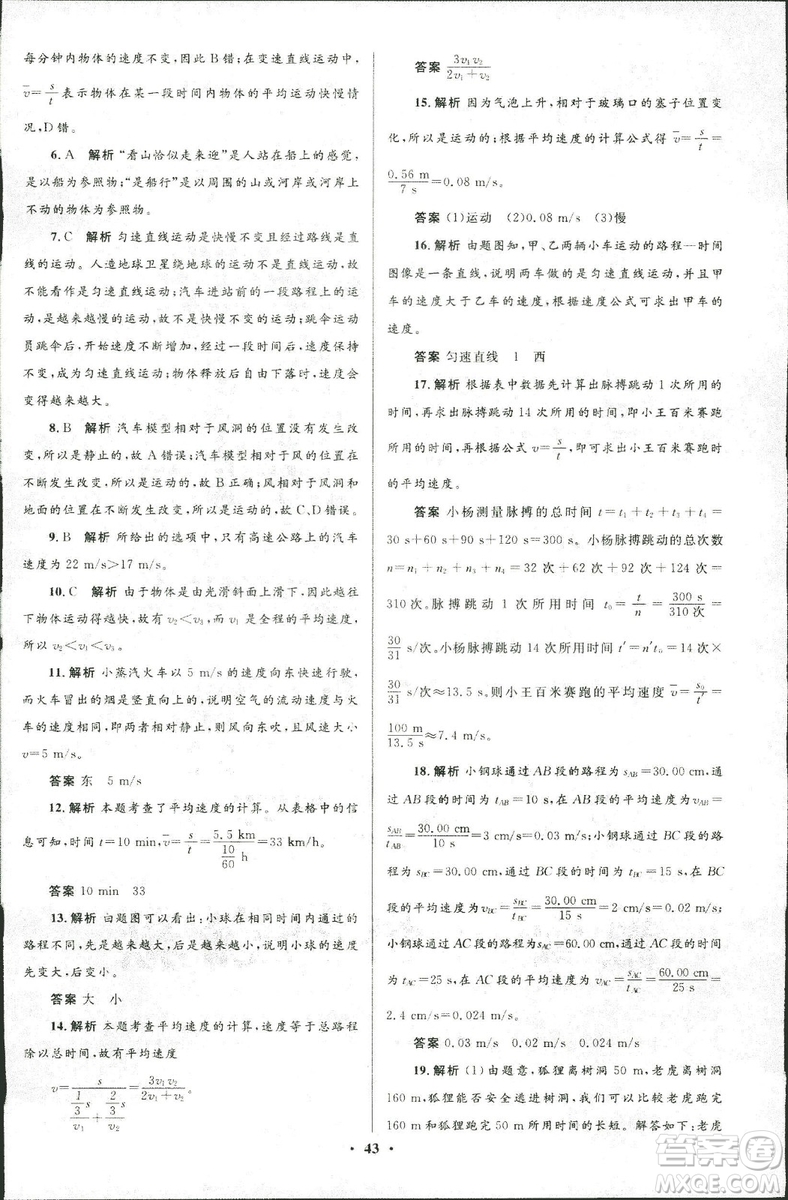 每分钟内物体的速度不变，因此 B 错；在变速直线运动中，
v̄=s/t 表示物体在某一段时间内物体的平均运动快慢情
况，D 错。
6. A 解析 “看山恰似走来迎”是人站在船上的感觉，
是以船为参照物；“是船行”是以周围的山或河岸或河岸上
不动的物体为参照物。
7. C 解析 匀速直线运动是快慢不变且经过路线是直
线的运动。人造地球卫星绕地球的运动，路线不是直线，故
不能看作是匀速直线运动；汽车进站前的一段路程上运动，
是越来越慢的运动，故不是快慢不变的运动；跳伞运动
员跳伞后，在阻力不断增加，与重力相等时，运动快慢不变，
可看成是匀速直线运动；物体释放后自由下落时，速度变
得越来越大。
8. B 解析 汽车模型相对于风洞的位置没有发生改
变，所以是静止的，故 A 错误；汽车模型相对于气流的位置
不断发生改变，是运动的，故 B 正确；风洞和汽车相对于
地面的位置没有发生改变，都是静止的，故 C、D 错误。
9. B 解析 所给出的选项中，只有高速公路上的汽车
速度为 22 m/s>17 m/s。
10. C 解析 由于物体是由光滑斜面上滑下，因此越往
下物体运动得越快，故 v₂<v₃，而 v₁ 是全程的平均速度，
所以 v₂<v₁<v₃。
11. 解析 小蒸汽火车以 5 m/s 的速度向东快速行驶，
而火车冒出的烟是竖直向上的，说明空气的流动速度与火
车的速度相同，即两者相对静止，则风向东吹，且风速大小
v=5 m/s。
答案 东 5 m/s
12. 解析 本题考查了平均速度的计算。从表格中的信
息可知，时间 t=10 min，v̄=s/t=5.5 km/(10/60)=33 km/h。
答案 10 min 33
13. 解析 由题图可以看出：小球在相同时间内通过的
路程不同，先是越来越大，后是越来越小，说明小球的速度
先变大，后变小。
答案 大 小
14. 解析 本题考查平均速度的计算，速度等于总路程
除以总时间，故有平均速度
v=s/((1/3)s/v₁+(2/3)s/v₂)=3v₁v₂/(2v₁+v₂)
答案 3v₁v₂/(2v₁+v₂)
15. 解析 因为气泡上升，相对于玻璃口的塞子位置变
化，所以是运动的；根据平均速度的计算公式得 v̄=s/t=
0.56 m/7 s=0.08 m/s。
答案 (1)运动 (2)0.08 m/s (3)慢
16. 解析 由题图知，甲、乙两辆小车运动的路程—时间
图像是一条直线，说明两车是做匀速直线运动的，且甲车
的速度大于乙车的速度，根据速度公式可求出甲车的
速度。
答案 匀速直线 1 西
17. 解析 根据表中数据先计算出脉搏跳动 1 次所用的
时间，再求出脉搏跳动 14 次所用的时间，即小王百米赛跑
所用的时间，根据公式 v=s/t，即可求出小王百米赛跑时
的平均速度。
答案 小杨测量脉搏的总时间 t=t₁+t₂+t₃+t₄=
30 s+60 s+90 s+120 s=300 s。小杨脉搏跳动的总次数
n=n₁+n₂+n₃+n₄=32 次+62 次+92 次+124 次=
310 次。脉搏跳动 1 次所用时间 t₀=t/n=300 s/310 次=
30/31 s/次。小杨脉搏跳动 14 次所用时间 t′=n′t₀=14 次×
30/31 s/次≈13.5 s。则小王百米赛跑的平均速度 v̄=s₀/t′=
100 m/13.5 s≈7.4 m/s。
18. 解析 小钢球通过 AB 段的路程为 s_AB=30.00 cm，
通过 AB 段的时间为 t_AB=10 s，AB 段的平均速度 v_AB=
s_AB/t_AB=30.00 cm/10 s=3 cm/s=0.03 m/s；小钢球通过 BC 段的路
程为 s_BC=30.00 cm，通过 BC 段的时间为 t_BC=15 s，BC
段的平均速度为 v_BC=s_BC/t_BC=30.00 cm/15 s=2 cm/s=0.02 m/s；
小钢球通过 AC 段的路程为 s_AC=60.00 cm，通过 AC 段的时间
t_AC=25 s，AC 段的平均速度为 v_AC=s_AC/t_AC=60.00 cm/25 s=
2.4 cm/s=0.024 m/s。
答案 0.03 m/s 0.02 m/s 0.024 m/s
19. 解析 (1)由题意，狐狸离树洞 50 m，老虎离树洞
160 m，狐狸能否安全逃进树洞，我们可以比较老虎跑完
160 m，狐狸跑完 50 m 所用时间的长短。解答如下：老虎
• 43 •
答案圈